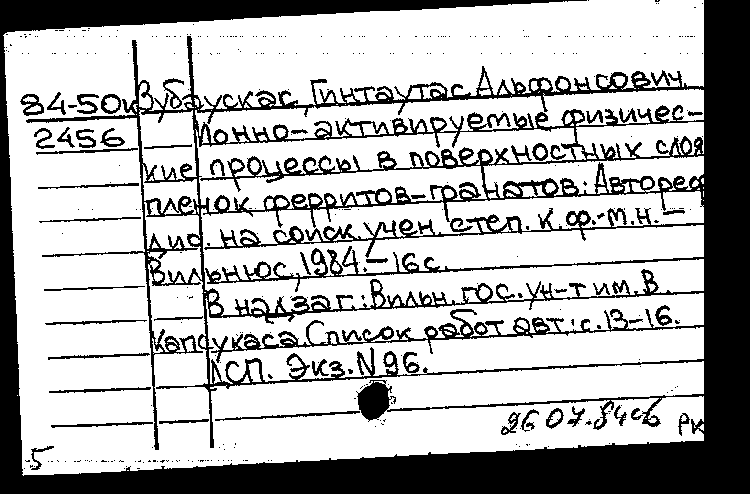 84-50к Зубаускас, Гинтаутас Альфонсович.
2456 Ионно-активируемые физичес-
кие процессы в поверхностных слоя
пленок ферритов-гранатов: Автореф
дис. на соиск. учен. степ. к. ф.-м.н. -
Вильнюс, 1984. - 16 с.
В надзаг.: Вильн. гос. ун-т им. В.
Капсукаса. Список работ авт.: с. 13-16.
ДСП. Экз. N 96.
26 07.84 РК
5